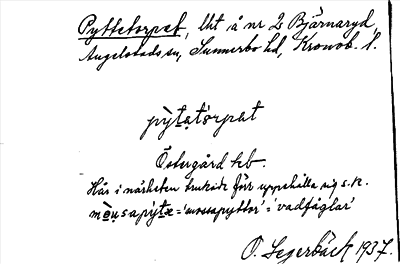 Pyttetorpet, lht å nr 2 Bjärnaryd,
Angelstads sn, Sunnerbo hd, Kronob. l.
pỳtatǫrpat
Östergård hb.
Här i närheten brukade förr uppehålla sig s.k.
mǫusapýtæ = 'mosapyttor' = 'vadfåglar'
O. Segerbäck 1937.